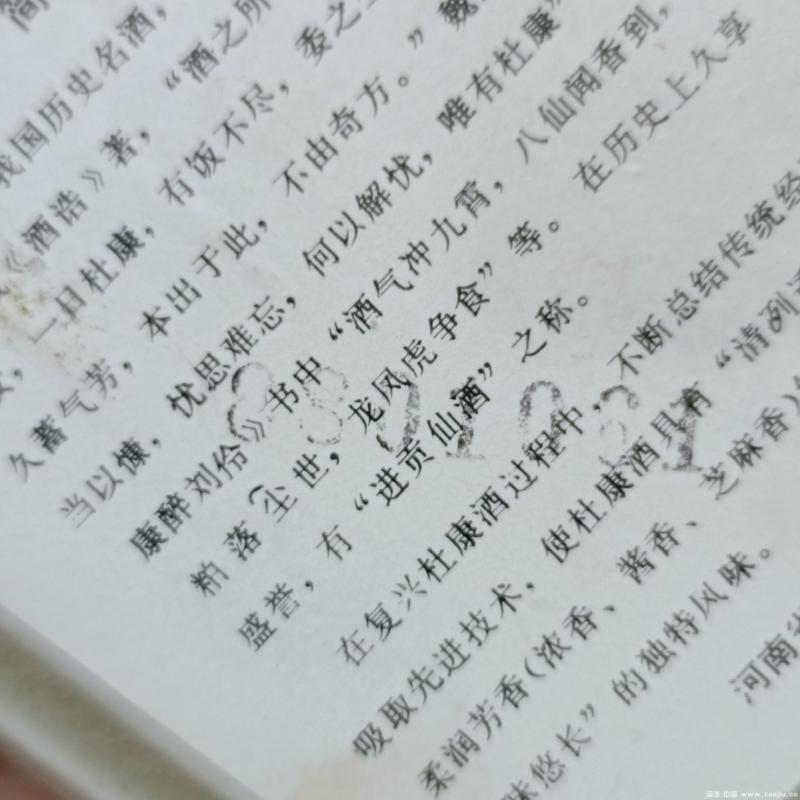 简
我国历史名酒,
《酒诰》著, “酒之所
一曰杜康, 有饭不尽, 委之
久蓄气芳, 本出于此, 不由奇方。” 魏
当以慷, 忧思难忘, 何以解忧, 唯有杜康
康醉刘伶》书中“酒气冲九霄, 八仙闻香到,
粕落尘世, 龙凤虎争食” 等。 在历史上久享
盛誉, 有“进贡仙酒” 之称。
在复兴杜康酒过程中, 不断总结传统经
吸取先进技术, 使杜康酒具有“清冽
柔润芳香(浓香、酱香、芝麻香)
味悠长” 的独特风味。
河南省
www.taojiu.cc